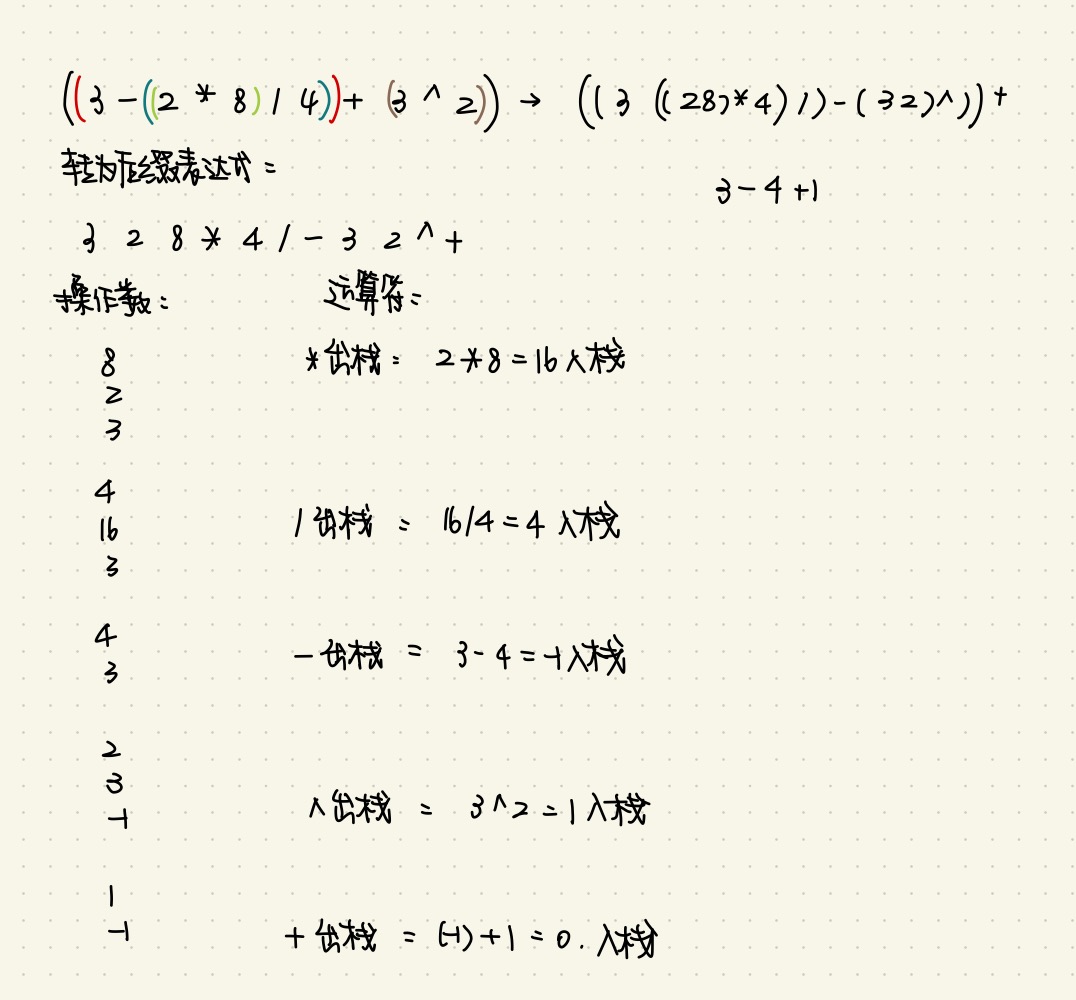 ((3-((2*8)/4))+(3^2)) → ((3((28)*4)/)-(32)^))+
转为后缀表达式:
3-4+1
3 2 8 * 4 / - 3 2 ^ +
操作数: 运算符:
8 *出栈: 2*8=16入栈
2
3
4
16 /出栈: 16/4=4 入栈
3
4 -出栈: 3-4=-1入栈
3
2
3 ^出栈: 3^2=1入栈
-1
1
-1 +出栈: (-1)+1=0.入栈